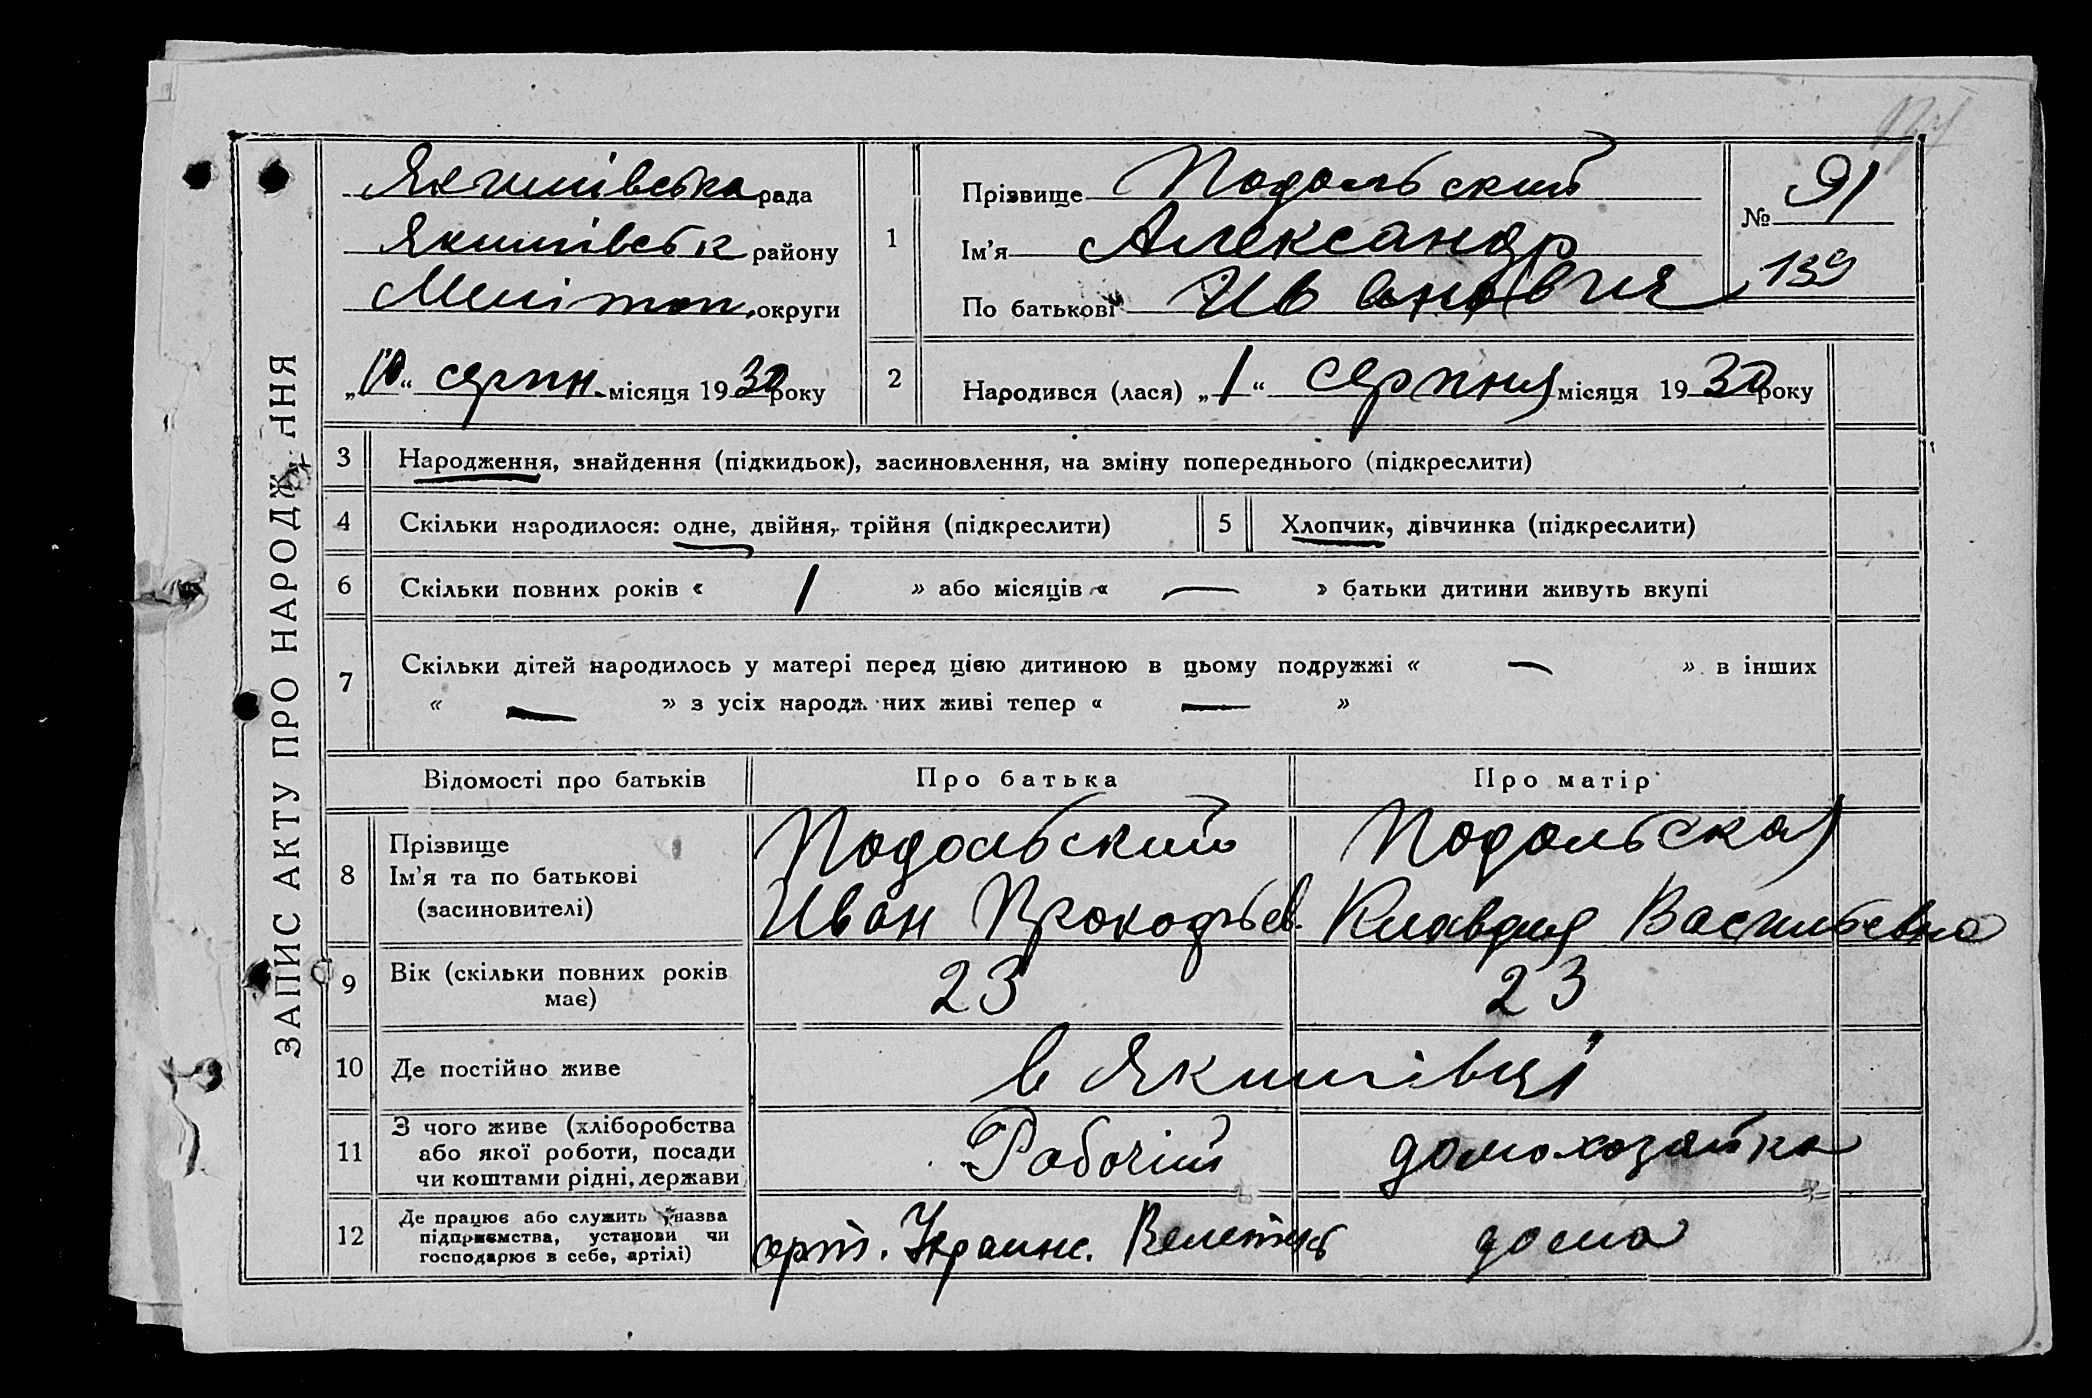 ЗАПИС АКТУ ПРО НАРОДЖ ННЯ
Якимівська рада
Якимівськ району
Мелітоп. округи
„10“ серпн. місяця 1930 року
1
Прізвище Подольский
Ім'я Александр
По батькові Иванович
№ 91
139
2
Народився (лася) „1“ серпня місяця 1930 року
3 Народження, знайдення (підкидьок), засиновлення, на зміну попереднього (підкреслити)
4 Скільки народилося: одне, двійня, трійня (підкреслити) 5 Хлопчик, дівчинка (підкреслити)
6 Скільки повних років « 1 » або місяців « — » батьки дитини живуть вкупі
7 Скільки дітей народилось у матері перед цією дитиною в цьому подружжі « — » в інших
« — » з усіх народж них живі тепер « — »
Відомості про батьків Про батька Про матір
8 Прізвище
Ім'я та по батькові
(засиновителі)
Подольский
Иван Прокофьев.
Подольская
Клавдия Васильевна
9 Вік (скільки повних років
має)
23 23
10 Де постійно живе в Якимівці
11 З чого живе (хліборобства
або якої роботи, посади
чи коштами рідні, держави
Рабочій домохозяйка
12 Де працює або служить (назва
підприємства, установи чи
господарює в себе, артілі)
арт. Украинс. дома